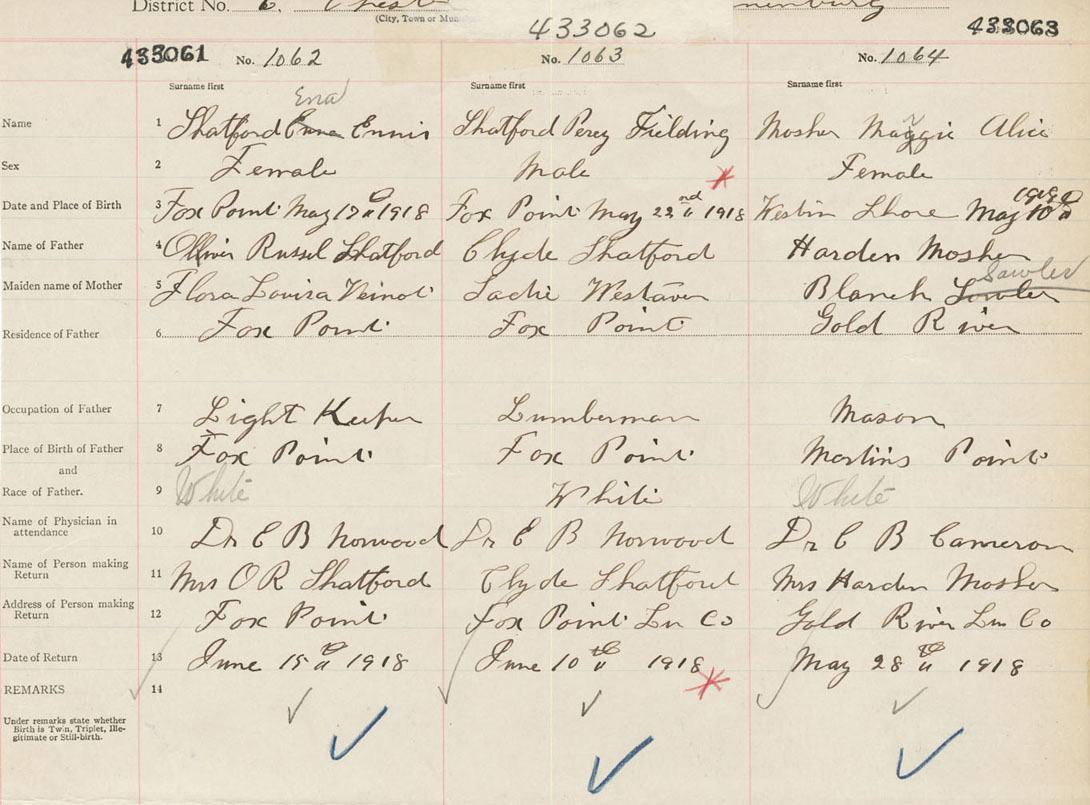 District No. 6. Chest
(City, Town or Mun
nenburg
433062
433063
433061 No. 1062 No. 1063 No. 1064
Surname first Surname first Surname first
Ena
Name 1 Shatford Enna Ennis Shatford Percy Fielding Mosher Maggie Alice
Sex 2 Female Male Female
1918
Date and Place of Birth 3 Fox Point May 17th 1918 Fox Point May 22nd 1918 Westin Shore May 10th
Name of Father 4 Olliver Russel Shatford Clyde Shatford Harden Mosher
Sawler
Maiden name of Mother 5 Flora Louisa Veinot Sadie Westaver Blanch Lowler
Residence of Father 6 Fox Point Fox Point Gold River
Occupation of Father 7 Light Keeper Lumberman Mason
Place of Birth of Father 8 Fox Point Fox Point Martins Point
and
Race of Father. 9 White White White
Name of Physician in
attendance 10 Dr E B Norwood Dr E B Norwood Dr C B Cameron
Name of Person making
Return 11 Mrs O R Shatford Clyde Shatford Mrs Harden Mosher
Address of Person making
Return 12 Fox Point Fox Point Lu Co Gold River Lu Co
Date of Return 13 June 15th 1918 June 10th 1918 May 28th 1918
REMARKS 14
Under remarks state whether
Birth is Twin, Triplet, Ille-
gitimate or Still-birth.